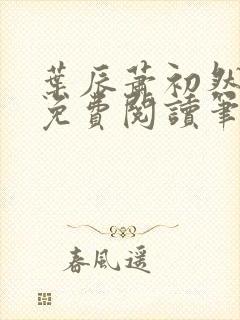 葉辰蕭初然
免費閱讀筆
春風遥